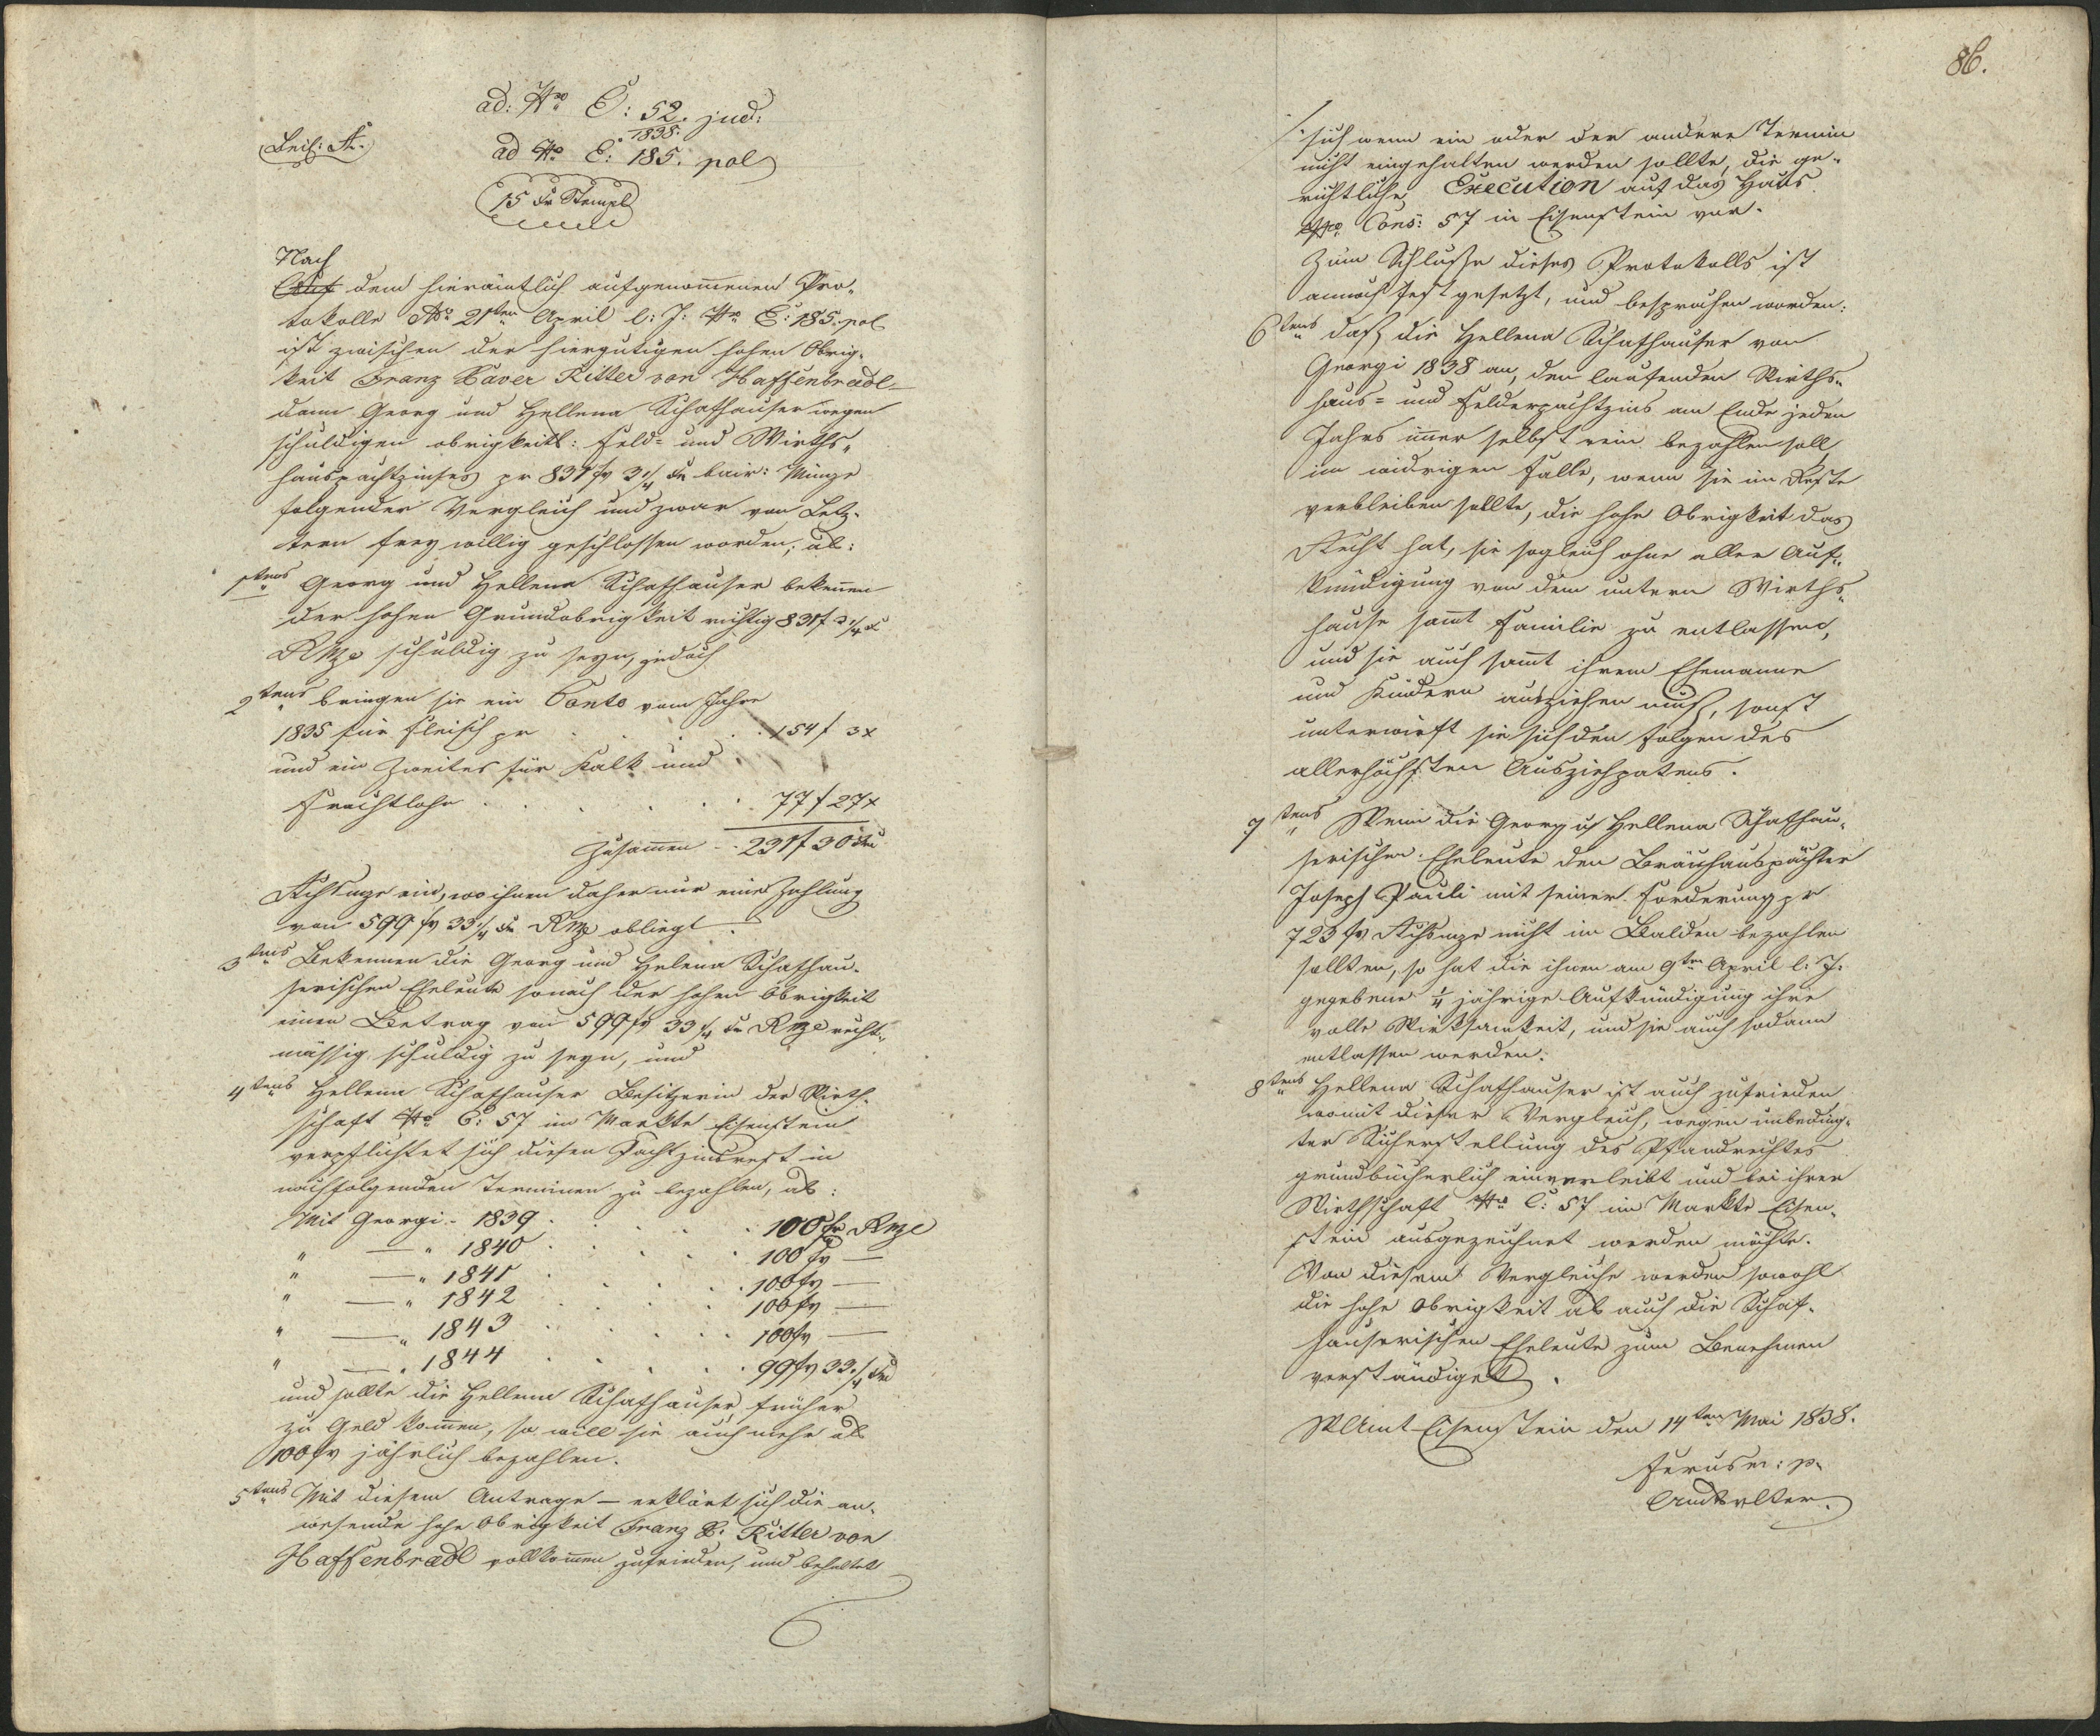 ad: Nro E: 52. jud:
1838.
Beil: A.
ad Nro E: 185. pol
15 xr Stempl
Nach
Auf dem hierämtlich aufgenommenen Pro-
tokolle ddo 21ten April l: J: Nro E: 185. pol
ist zwischen der hiergütigen hohen Obrig-
keit Franz Xaver Ritter von Haffenbredl
dann Georg und Hellena Schafhauser wegen
schuldigen obrigkeitl: Feld- und Wirths-
hauspachtzinses pr 831 fr 3 1/4 xr bair: Münze
folgender Vergleich und zwar von Letz-
tern freywillig geschlossen worden, als:
1tens Georg und Hellena Schafhauser bekennen
der hohen Grundobrigkeit richtig 831 f 3 1/4 x
RMze schuldig zu seyn, jedoch
2tens bringen sie ein Conto vom Jahre
1835 für Fleisch pr . . . 154 f 3 x
und ein Zweites für Kalk und
Frachtlohn . . . . 77 f 27 x
Zusammen - . 231 f 30 xr
Rchsmze ein, wo ihnen daher nur eine Zahlung
von 599 fr 33 1/4 xr RMze obliegt.
3tens Bekennen die Georg und Helena Schafhau-
serischen Eheleute sonach der hohen Obrigkeit
einen Betrag von 599 fr 33 1/4 xr RMze recht-
mässig schuldig zu seyn, und
4tens Hellena Schafhauser Besitzerin der Wirth-
schaft Nro C: 57 im Markte Eisenstein
verpflichtet sich diesen Pachtzinsrest in
nachfolgenden Terminen zu bezahlen, als:
Mit Georgi - 1839 . . . . 100 fr RMze
" — " 1840 . . . . 100 fr —
" — " 1841 . . . . 100 fr —
" — " 1842 . . . . 100 fr —
" — " 1843 . . . . 100 fr —
" — " 1844 . . . . 99 fr 33 1/4 xr
und sollte die Hellena Schafhauser früher
zu Geld kommen, so will sie auch mehr als
100 fr jährlich bezahlen.
5tens Mit diesem Antrage — erklärt sich die an-
wesende hohe Obrigkeit Franz X. Ritter von
Haffenbredl vollkommen zufrieden, und behaltet
86.
/. sich wenn ein oder der andere Termin
nicht eingehalten werden sollte, die ge-
richtliche Execution auf das Haus
Nro Cons: 57 in Eisenstein vor.
Zum Schluße dieses Protokolls ist
annoch festgesetzt, und besprochen worden:
6tens daß die Hellena Schafhauser von
Georgi 1838 an, den laufenden Wirths-
haus- und Felderpachtzins am Ende jeden
Jahrs immer selbst rein bezahlen soll,
im widrigen Falle, wenn sie im Reste
verbleiben sollte, die hohe Obrigkeit das
Recht hat, sie sogleich ohne aller Auf-
kündigung von dem untern Wirths-
hause sammt Familie zu entlassen,
und sie auch sammt ihrem Ehemanne
und Kindern ausziehen muß, sonst
unterwirft sie sich den Folgen des
allerhöchsten Ausziehpatens.
7tens Wenn die Georg u Hellena Schafhau-
serischen Eheleute den Bräuhauspächter
Joseph Pauli mit seiner Forderung pr
723 fr Rchsmze nicht in Balden bezahlen
sollten, so hat die ihnen am 9ten April l: J:
gegebene 1/4 jährige Aufkündigung ihre
volle Wirksamkeit, und sie auch sodann
entlassen werden.
8tens Hellena Schafhauser ist auch zufrieden
womit dieser Vergleich, wegen unbeding-
ter Sicherstellung des Pfandrechtes
grundbücherlich einverleibt und bei ihrer
Wirthschaft Nro C: 57 im Markte Eisen-
stein ausgezeichnet werden möchte.
Von diesem Vergleiche werden sowohl
die hohe Obrigkeit als auch die Schaf-
hauserischen Eheleute zum Benehmen
verständiget.
Amt Eisenstein den 14ten Mai 1838.
m: p.